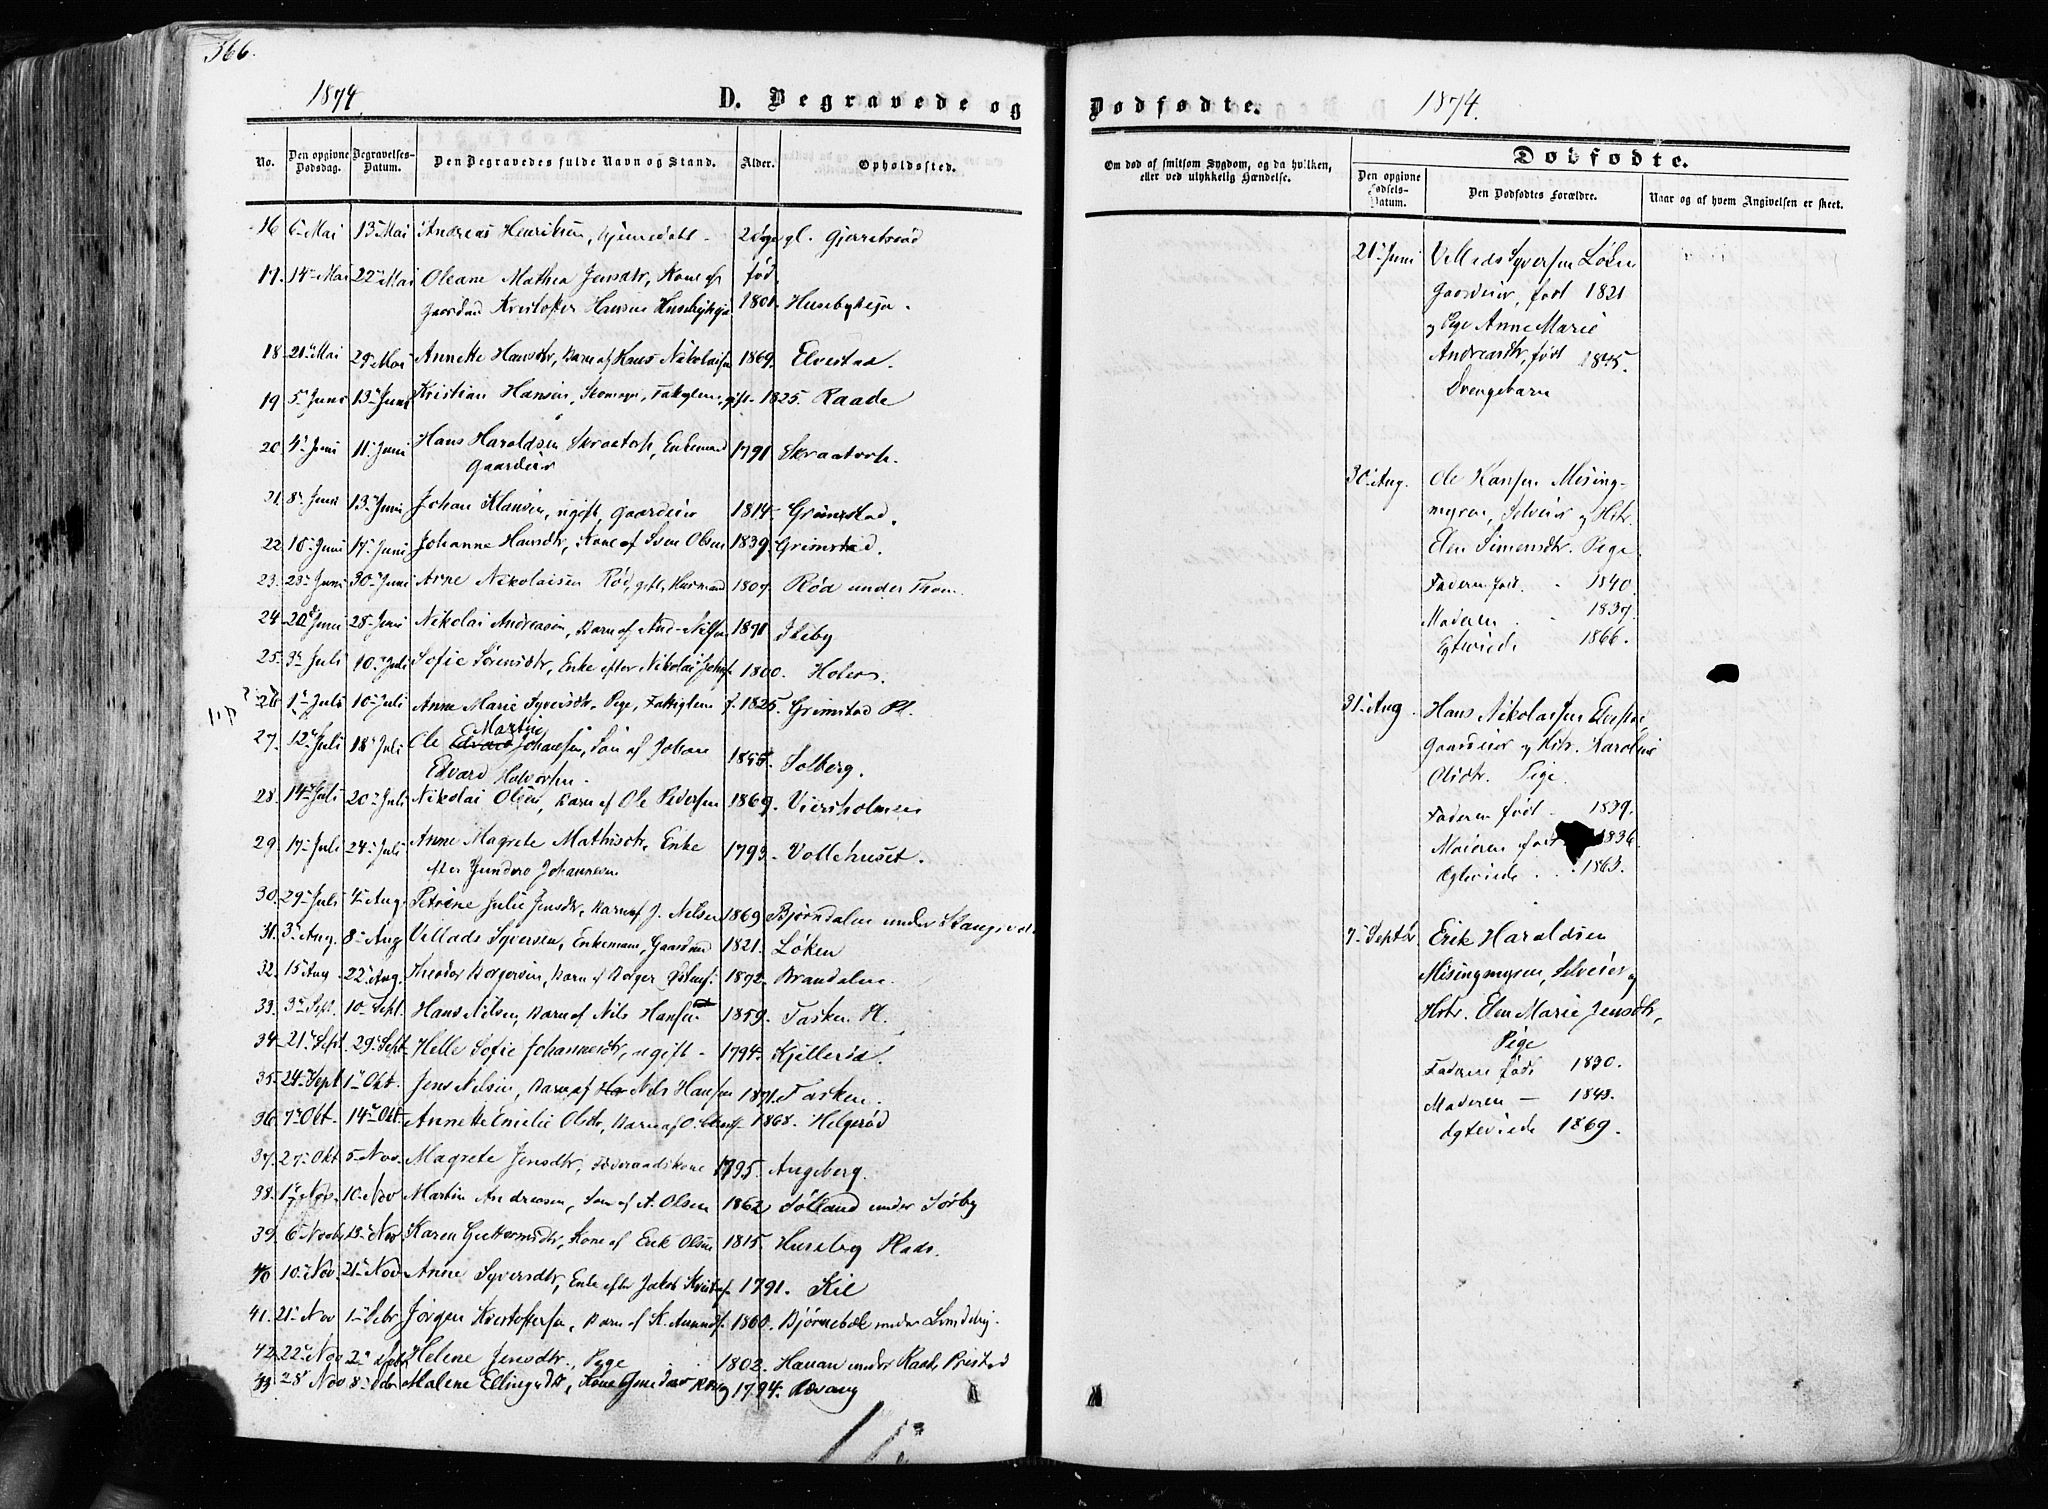 366.
1874.
D. Begravede og
No.
Den opgivne Dødsdag.
Begravelses-Datum.
Den Begravedes fulde Navn og Stand.
Alder.
Opholdssted.
16 6 Mai 13 Mai Andreas Henriksen, gl. Gjerrebraad
17. 14 Mai 22 Mai Oleane Mathea Jensdtr, Kone af fød.
Gaardm. Kristoffer Hansen 1801. Husebyheja.
18. 21 Mai 29 Mai Annette Hansdtr, Barn af Hans Nikolaisen 1869. Elvestad.
19 5 Juni 13 Juni Kristian Hansen, Skomager, Fattiglem, gift 1825. Raade
20 4 Juni 11 Juni Hans Haraldsen Skraatorp, Enkemand 1791 Skraatorp.
Gaardeier
21. 8 Juni 13 Juni Johan Hansen, ugift, Gaardeier 1814. Grimstad.
22 10 Juni 17 Juni Johanne Hansdtr, Kone af Sven Olsen 1839. Grimstad.
23. 23 Juni 30 Juni Arne Nikolaisen Rød, gift, Husmand 1807. Rød under Tom
24 20 Juni 28 Juni Nikolai Andreasen, Barn af And. Nilsen 1871 Ileby
25. 3 Juli 10 Juli Sofie Sørensdtr, Enke efter Nikolai 1800. Holers.
26 1 Juli 10 Juli Anne Marie Syversdtr, Pige, Fattiglem f. 1825. Grimstad Pl.
Martin
27. 12 Juli 18 Juli Ole Edvard Johansen, Søn af Johan Solberg.
Edvard Halvorsen.
28. 14 Juli 20 Juli Nikolai Olsen, Barn af Ole Pedersen 1869. Viersholmen
29. 17 Juli 24 Juli Anne Magrete Mathisdtr, Enke 1793. Vollehuset.
efter Gunder Johannesen
30. 29 Juli 4 Aug. Petrine Julie Jensdtr, Barn af J. Nilsen 1869 Bjørndalen under
31. 3 Aug. 8 Aug Vellads Syversen, Enkemand, Gaardmd 1821. Løken
32. 15 Aug 22 Aug. Theodor Borgersen, Barn af Borger Brandalen.
33. 3 Sept. 10 Sept. Hans Nilsen, Barn af Nils Hansen 1859. Tasken Pl.
34 21 Sept 29 Sept Helle Sofie Johannesdtr, ugift 1794. Kjillerød.
35 24 Sept 1 Okt. Jens Nilsen, Barn af Nils Hansen 1871. Tasken.
36 7 Okt 14 Okt Annette Emilie Olsdtr, Barn af O. 1868. Helgerød
37. 27 Okt 5 Nov. Magrete Jensdtr, Føderaadskone 1795. Augeberg.
38. 1 Nov. 10 Nov Martin Andreasen, Søn af A. Olsen 1862 Sølland under Sørby
39. 6 Novbr 13 Nov Karen Guttormsdtr, Kone af Erik Olsen 1815. Huseby Plads.
40 10 Nov. 21 Nov Anne Syversdtr, Enke efter Jakob 1791. Kil
41. 21 Nov 1 Debr Jørgen Kristoffersen, Barn af K. Amunds. 1860. Bjørnebæk under Lundeby.
42 22 Nov 2 Debr Helene Jensdtr., Pige 1802. Hauan under Raade Prestad
43 28 Nov 8 Debr Malene Ellingsdtr, Kone 1794. Rævaug
Dødfødte.
1874.
Om død af smitsom Sygdom, og da hvilken, eller ved ulykkelig Hændelse.
Dødfødte.
Den opgivne Fødsels-Datum.
Den Dødfødtes Forældre.
Naar og af hvem Angivelsen er skeet.
21 Juni Vellads Syversen Løken
Gaardeier, født 1821
og Pige Anne Marie
Andreasdtr, født 1845.
Drengebarn
30 Aug. Ole Hansen Mising-
myren, Selveier og Hstr.
Elen Simensdtr. Pige.
Faderen født. 1840.
Moderen 1837.
Egteviede 1866.
31 Aug Hans Nikolaisen
Gaardeier og Hstr. Karoline
Olsdtr. Pige.
Faderen født 1839.
Moderen født 1836
Egteviede 1863.
7 Septbr. Erik Haraldsen
Misingmyren, Selveier og
Hstr. Elen Marie Jensdtr,
Pige
Faderen født 1830.
Moderen — 1843.
Egteviede 1869.